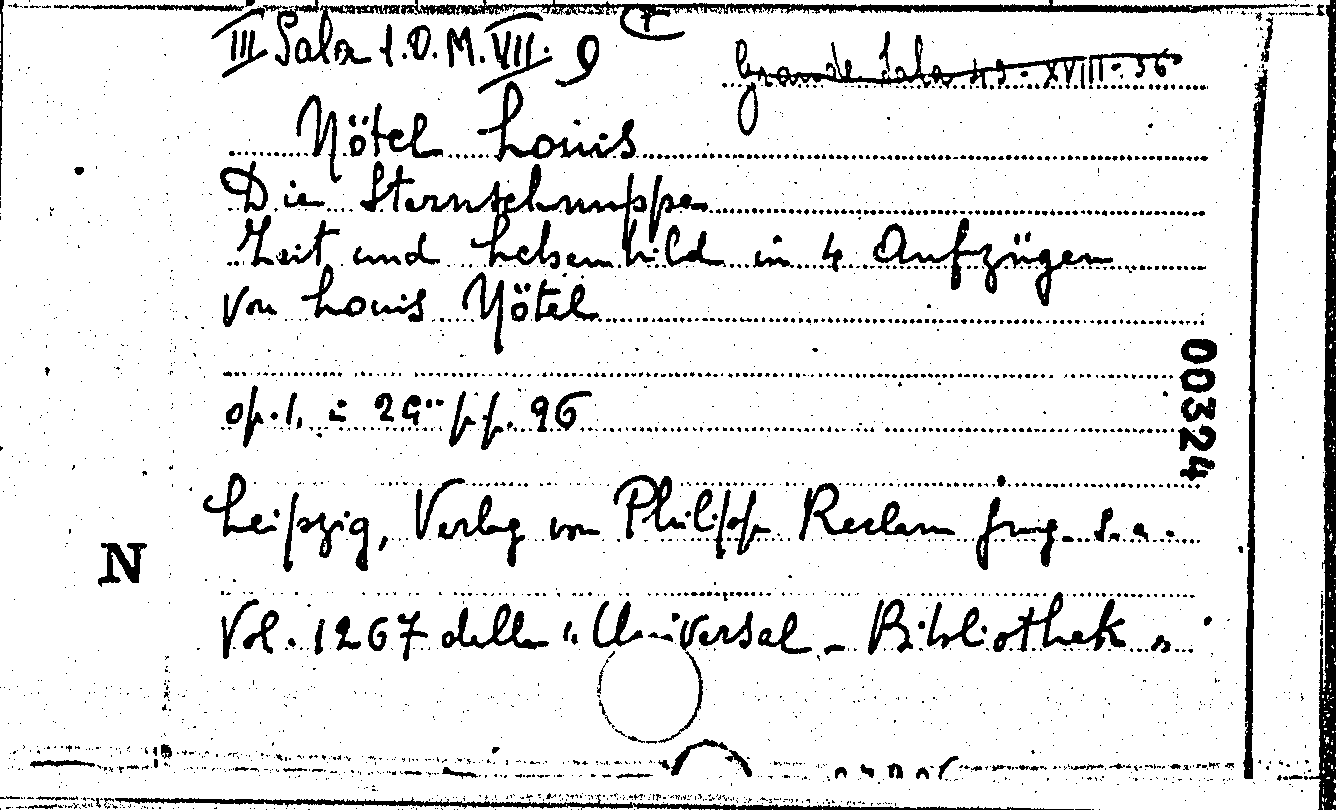 III Sala 1.D.M.VII. 9
Grande Sala 49-XVIII-36
Nötel Louis
Die Sternschnuppe
Zeit und Lebensbild in 4 Aufzügen
von Louis Nötel
op. 1. in pp. 96
00324
Leipzig, Verlag von Philipp Reclam jung. s.a.
N
Vol. 1267 della "Universal-Bibliothek"